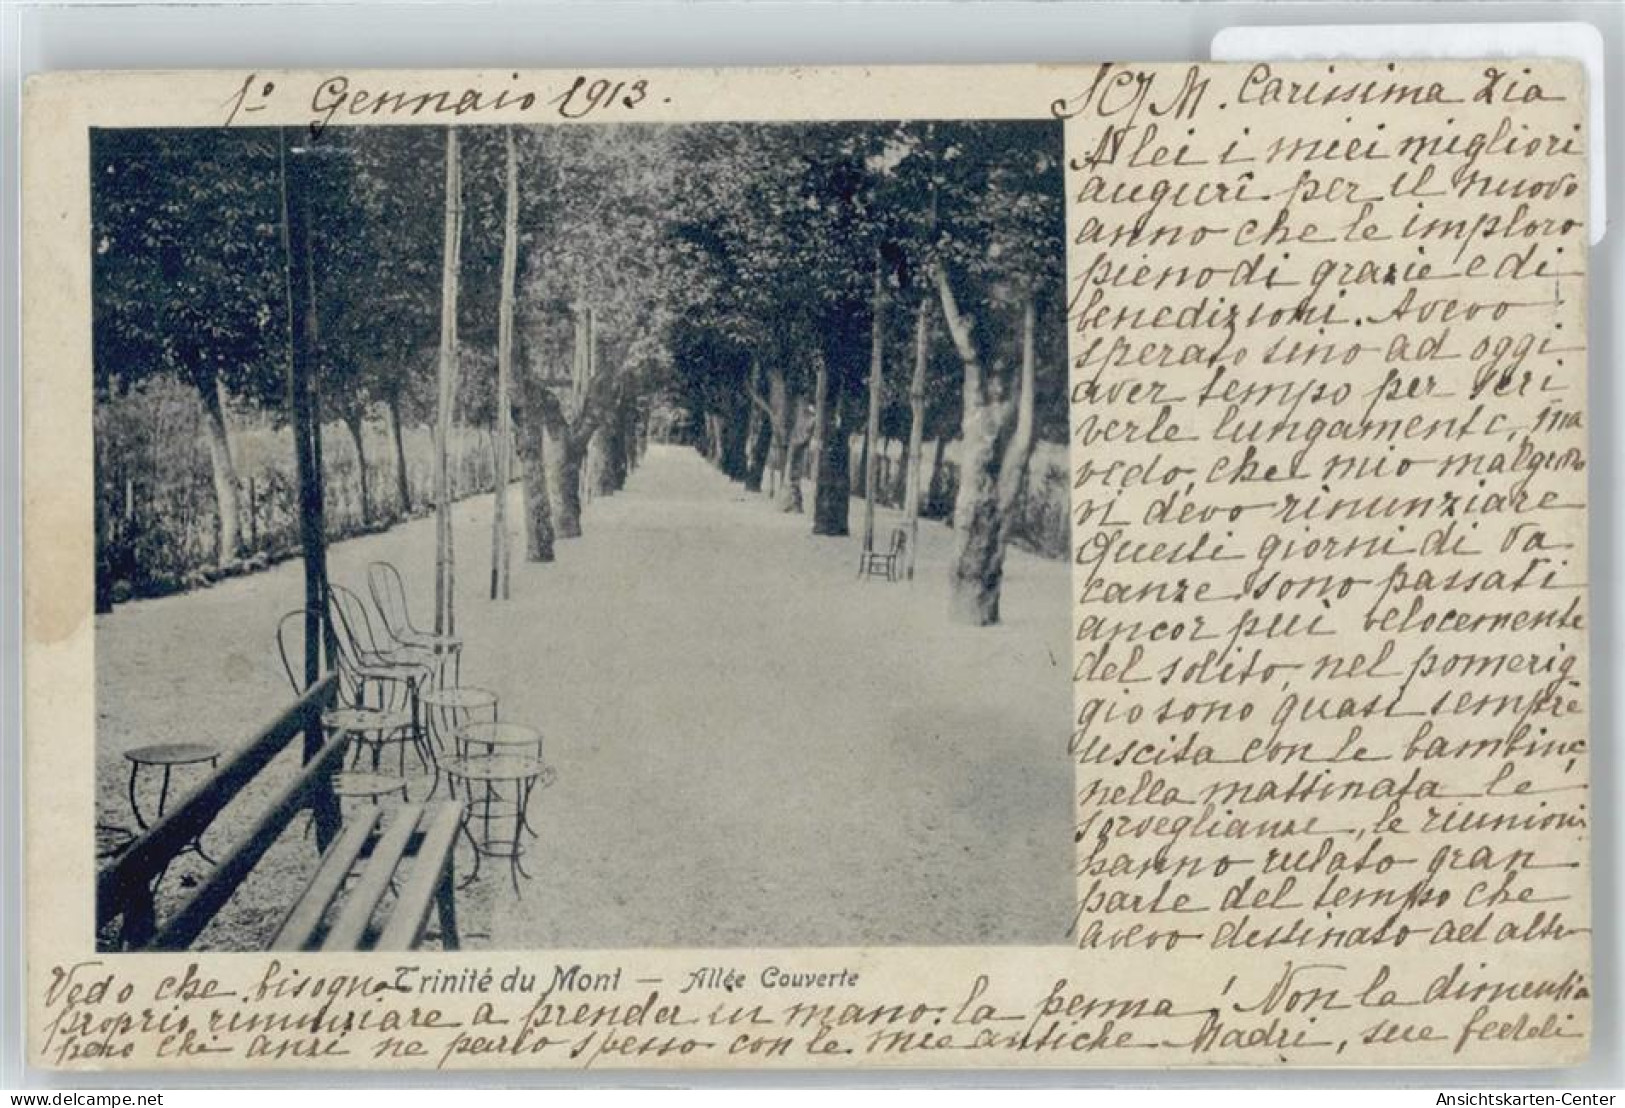 1º Gennaio 1913.
SCJM. Carissima Zia
A lei i miei migliori
auguri per il nuovo
anno che le imploro
pieno di grazie e di
benedizioni. Avevo
sperato sino ad oggi
aver tempo per scri
verle lungamente, ma
vedo, che mio malgrado
vi devo rinunziare
Questi giorni di va
canze sono passati
ancor più velocemente
del solito, nel pomerig
gio sono quasi sempre
uscita con le bambine,
nella mattinata le
sorveglianze, le riunioni
hanno rubato gran
parte del tempo che
avevo destinato ad altro
Vedo che bisogna
Trinité du Mont — Allée Couverte
proprio rinunziare a prender in mano la penna! Non la dimentico
però chè anzi ne parlo spesso con le mie antiche Madri, sue fedeli
www.delcampe.net
Ansichtskarten-Center